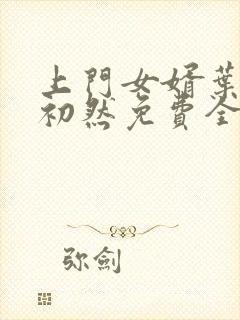 上門女婿葉
初然免費全
弥劍